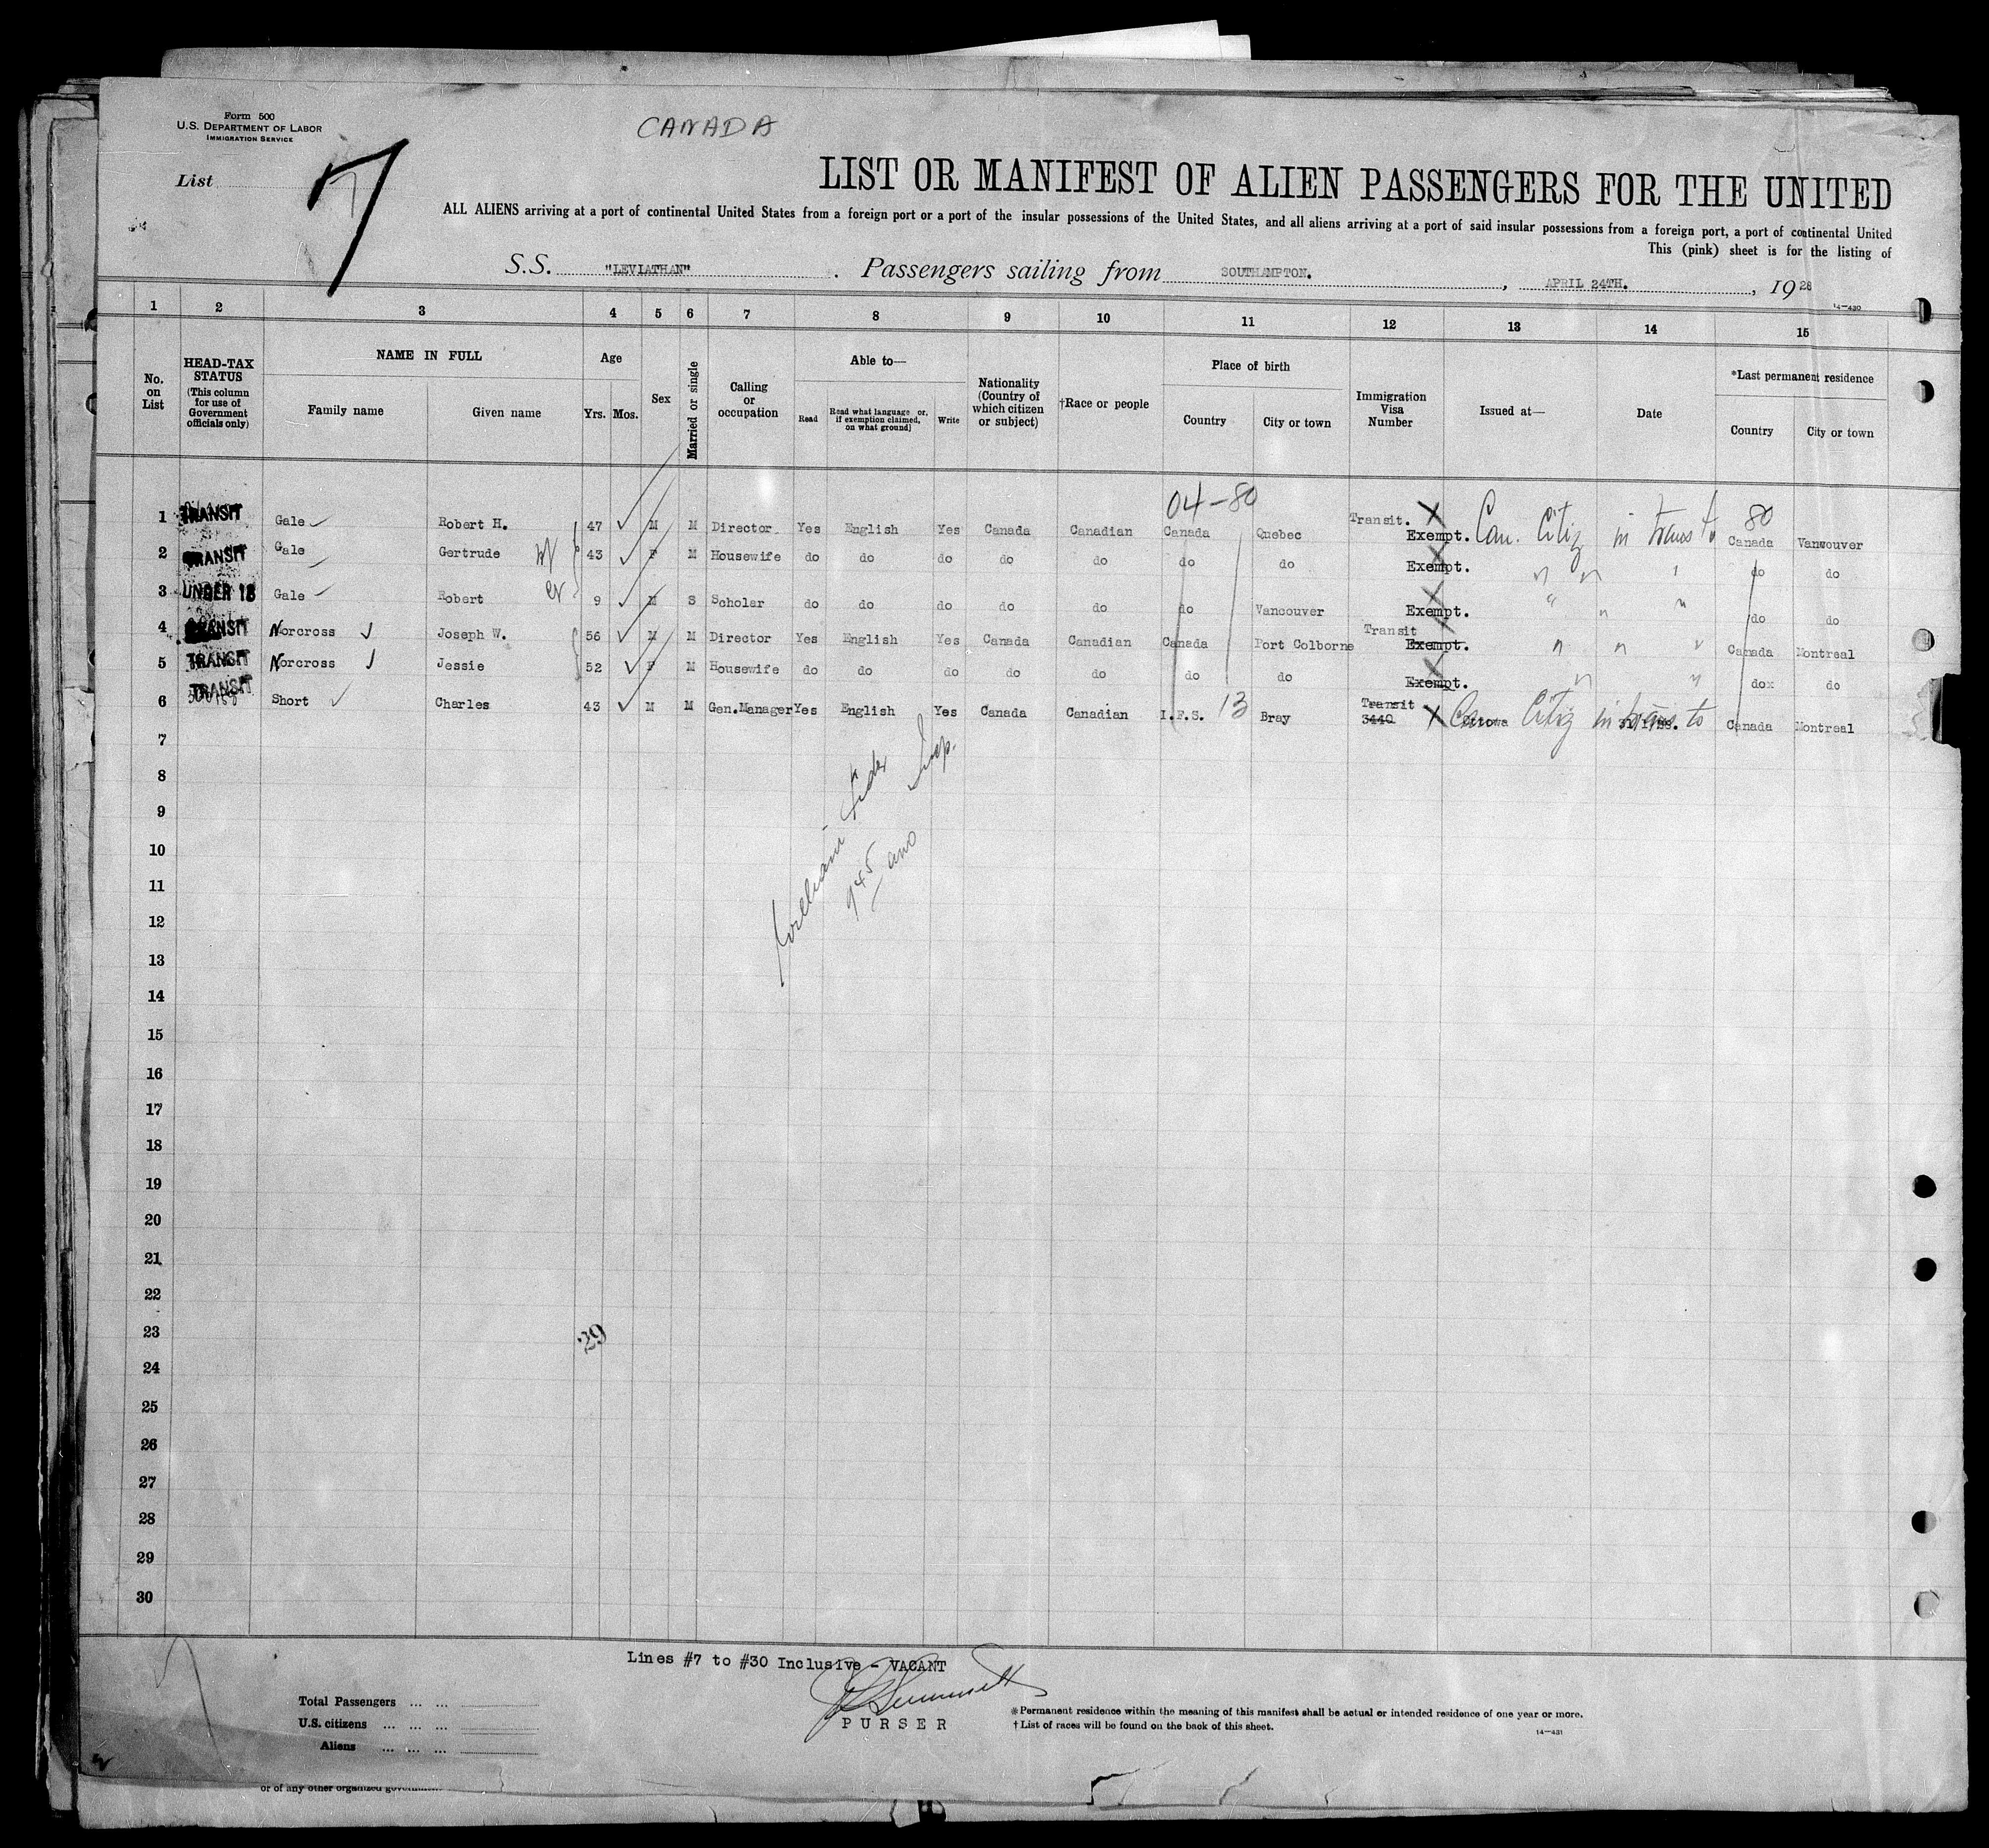 Form 500
U.S. DEPARTMENT OF LABOR
IMMIGRATION SERVICE
CANADA
List 7
LIST OR MANIFEST OF ALIEN PASSENGERS FOR THE UNITED
ALL ALIENS arriving at a port of continental United States from a foreign port or a port of the insular possessions of the United States, and all aliens arriving at a port of said insular possessions from a foreign port, a port of continental United
This (pink) sheet is for the listing of
S.S. "LEVIATHAN". Passengers sailing from SOUTHAMPTON., APRIL 24TH., 1928
14-430
1 2 3 4 5 6 7 8 9 10 11 12 13 14 15
No. on List
HEAD-TAX STATUS (This column for use of Government officials only)
NAME IN FULL
Family name Given name
Age
Yrs. Mos.
Sex
Married or single
Calling or occupation
Able to—
Read Read what language or, if exemption claimed, on what ground] Write
Nationality (Country of which citizen or subject)
†Race or people
Place of birth
Country City or town
Immigration Visa Number
Issued at—
Date
*Last permanent residence
Country City or town
04-80
1 TRANSIT Gale Robert H. 47 M M Director Yes English Yes Canada Canadian Canada Quebec Transit. X Exempt. Can. Citiz in trans to 80 Canada Vancouver
2 TRANSIT Gale Gertrude W 43 F M Housewife do do do do do do do Exempt. " " " do do
3 UNDER 16 Gale Robert 9 M S Scholar do do do do do do Vancouver Exempt. " " " do do
4 TRANSIT Norcross Joseph W. 56 M M Director Yes English Yes Canada Canadian Canada Port Colborne Transit Exempt. " " " Canada Montreal
5 TRANSIT Norcross Jessie 52 F M Housewife do do do do do do do Exempt. " " dox do
6 TRANSIT Short Charles 43 M M Gen.Manager Yes English Yes Canada Canadian I.F.S. 13 Bray Transit 3440 X Ottowa Can Citiz in trans to Canada Montreal
7
8
9
10
11
12
13
14
15
16
17
18
19
20
21
22
23
24
25
26
27
28
29
30
William Insp.
945
29
Lines #7 to #30 Inclusive - VACANT
Total Passengers ... ...
U.S. citizens ... ... ...
Aliens ... ... ...
PURSER
* Permanent residence within the meaning of this manifest shall be actual or intended residence of one year or more.
† List of races will be found on the back of this sheet.
14-431
or of any other organized